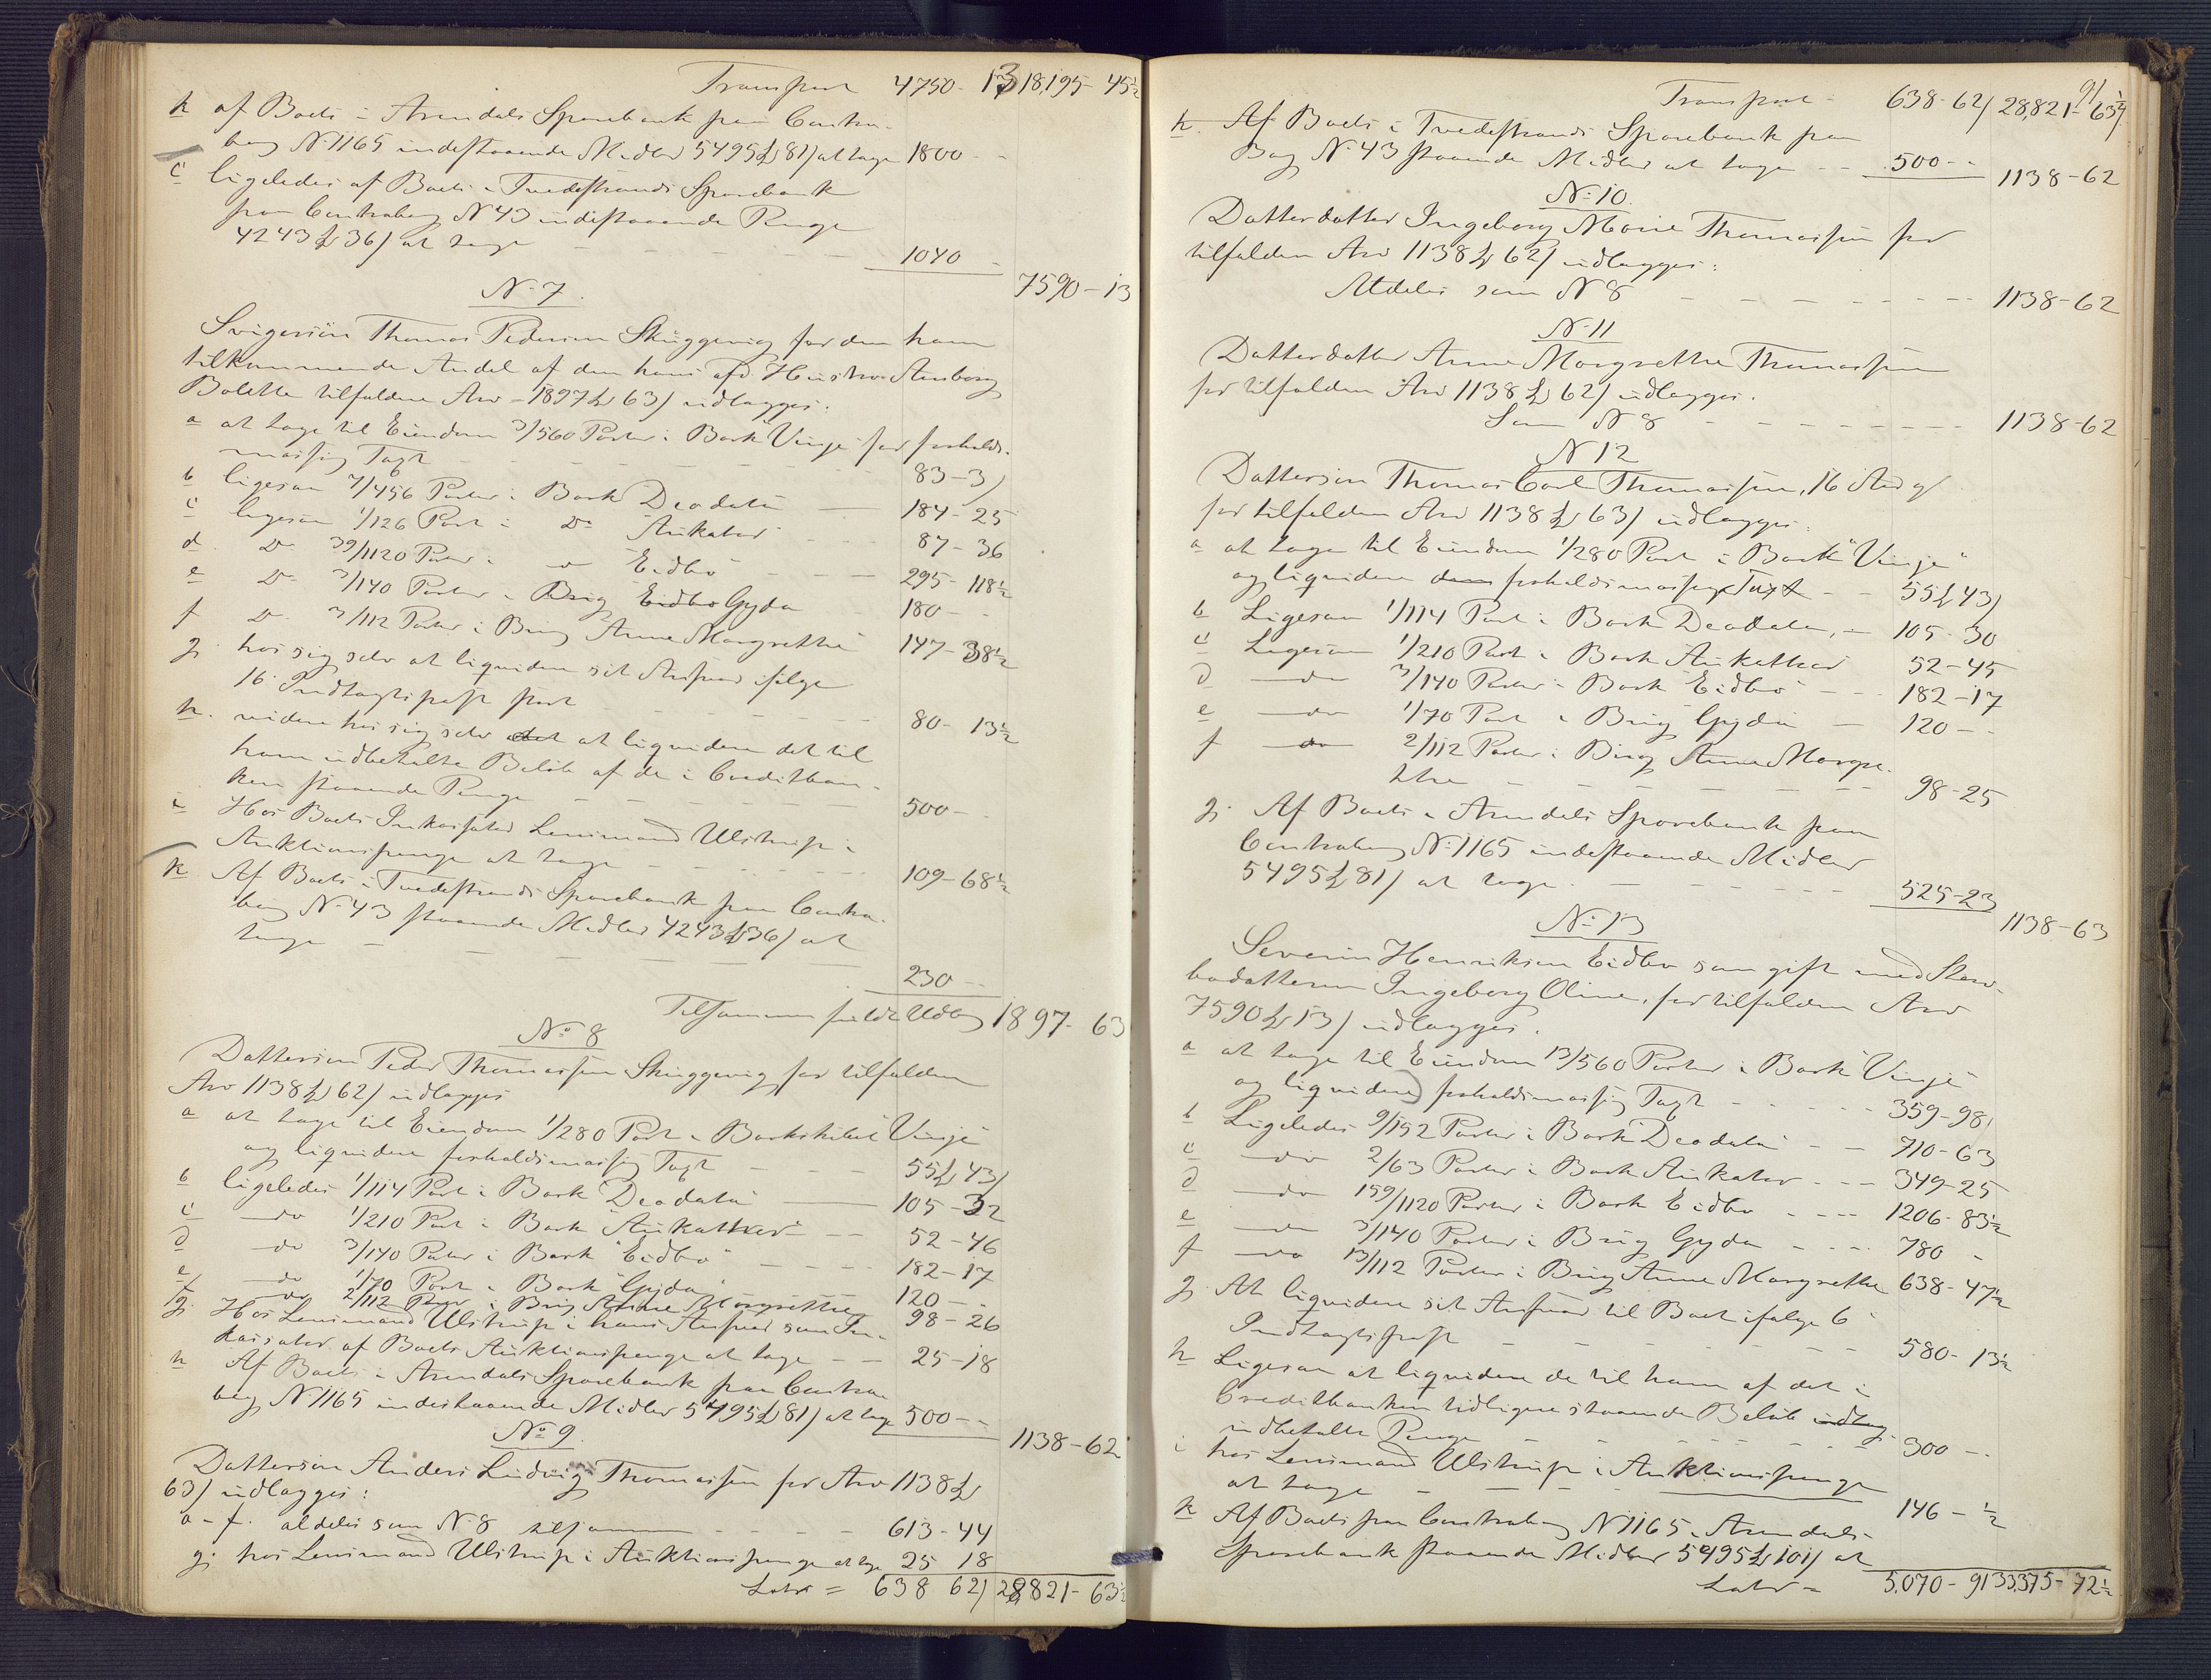 Transport 4750 - 13 18,195 - 45½
h af Boets i Arendals Sparebank paa Contra-
bog N: 1165 indestaaende Midler 5495 81 at tage 1800 - -
i ligeledes af Boets i Tvedestrands Sparebank
paa Contrabog N 43 indestaaende Penge
4243 36 at tage - - - - 1040 -
7590 - 13
N: 7.
Svigersön Thomas Pedersen Skuggevig for den ham
tilkommende Andel af den hans afd. Hustroe Aasborg
Bolette tilfaldene Arv - 1897 63 udlægges:
a at tage til Eiendom 3/560 Parter i Bark Vinje for forholds-
mæssig Taxt - - - 83 - 3
b ligesaa 7/456 Parter i Bark Deodata - 184 - 25
c ligesaa 1/126 Part i Do Aukathor - - - 87 - 36
d. Do 39/1120 Parter i do Eidbo - - - 295 - 118½
e Do 3/140 Parter i Brig Eidbo Gyda 180 - -
f Do 3/112 Parter i Brig Anne Margrethe 147 - 38½
g. hos sig selv at liquidere sit Ansvar ifølge
16 Indtægtspost stort - - - 80 - 13½
h. videre hos sig selv at liquidere det til
ham udbetalte Beløb af de i Creditban-
ken staaende Penge - - - 500 - -
i Hos Boets Inkassator Lensmand Ulstrup i
Auktionspenge at tage - - - 109 - 68½
k Af Boets i Tvedestrands Sparebank paa Contra-
bog N: 43 staaende Midler 4243 36 at
tage - - - 230 - -
Tilsammen fuldt Udlæg 1897 - 63
No 8
Dattersøn Peder Thomassen Skuggevig for tilfalden
Arv 1138 62 udlægges
a at tage til Eiendom 1/280 Part i Barkskibet Vinje
og liquidere forholdsmæssig Taxt - - - 55 43
b ligeledes 1/114 Part i Bark Deodata - 105 - 32
c do 1/210 Part i Bark Aukathor - - 52 - 46
d do 3/140 Parter i Bark Eidbo - - - 182 - 17
e do 1/70 Part i Bark Gyda 120 - -
f do 2/112 Parter i Brig Anne Margrethe 98 - 26
g. Hos Lensmand Ulstrup i hans Ansvar som In-
kassator af Boets Auktionspenge at tage - - 25 - 18
h Af Boets i Arendals Sparebank paa Contra-
bog N: 1165 indestaaende Midler 5495 81 at tage 500 - -
1138 - 62
No 9.
Dattersøn Anders Ludvig Thomassen for Arv 1138
63 udlægges:
a - f. aldeles som N: 8 tilsammen - - - 613 - 44
g. hos Lensmand Ulstrup i Auktionspenge at tage 25 18
Latus = 638 62 28821 - 63½
91
Transport - 638 - 62 28,821 - 63½
h. Af Boets i Tvedestrands Sparebank paa
Bog N: 43 staaende Midler at tage - - 500 - -
1138 - 62
N: 10.
Datterdatter Ingeborg Marie Thomassen for
tilfalden Arv 1138 62 udlægges:
Aldeles som N 8 - - - 1138 - 62
N: 11
Datterdatter Anne Margrethe Thomassen
for tilfalden Arv 1138 62 udlægges.
Som N 8 - - - 1138 - 62
N 12
Dattersøn Thomas Carl Thomassen, 16 Aar gl
for tilfalden Arv 1138 63 udlægges:
a at tage til Eiendom 1/280 Part i Bark "Vinje"
og liquidere dens forholdsmæssige Taxt - - 55 43
b Ligesaa 1/114 Part i Bark Deodata, - 105 - 30
c Ligesaa 1/210 Part i Bark Aukathor 52 - 45
d do 3/140 Parter i Bark Eidbo - - - 182 - 17
e do 1/70 Part i Brig Gyda - 120 - -
f do 2/112 Parter i Brig Anne Margre-
the - - - 98 - 25
g. Af Boets i Arendals Sparebank paa
Contrabog N: 1165 indestaaende Midler
5495 81 at tage. - - - 525 - 23
1138 - 63
No 13
Severin Henriksen Eidbo som gift med Sterv-
bodatteren Ingeborg Oline, for tilfalden Arv
7590 13 udlægges.
a at tage til Eiendom 13/560 Parter i Bark Vinje
og liquidere forholdsmæssig Taxt - - - 359 - 98
b Ligeledes 9/152 Parter i Bark Deodata - - 710 - 63
c do 2/63 Parter i Bark Aukator - - - 349 - 25
d do 159/1120 Parter i Bark Eidbo - - - 1206 - 83½
e do 3/140 Parter i Brig Gyda - - - 780 -
f do 13/112 Parter i Brig Anne Margrethe 638 - 47½
g. At liquidere sit Ansvar til Boet ifølge 6
Indtægtspost - - - 580 - 13½
h Ligesaa at liquidere de til ham af det i
Creditbanken tidligere staaende Beløb
udbetalte Penge - - - 300 - -
i hos Lensmand Ulstrup i Auktionspenge
at tage - - - 146 - ½
k Af Boets paa Contrabog N 1165 i Arendals
Sparebank staaende Midler 5495 101 at
Latus = 5,070 - 91 33375 - 72½